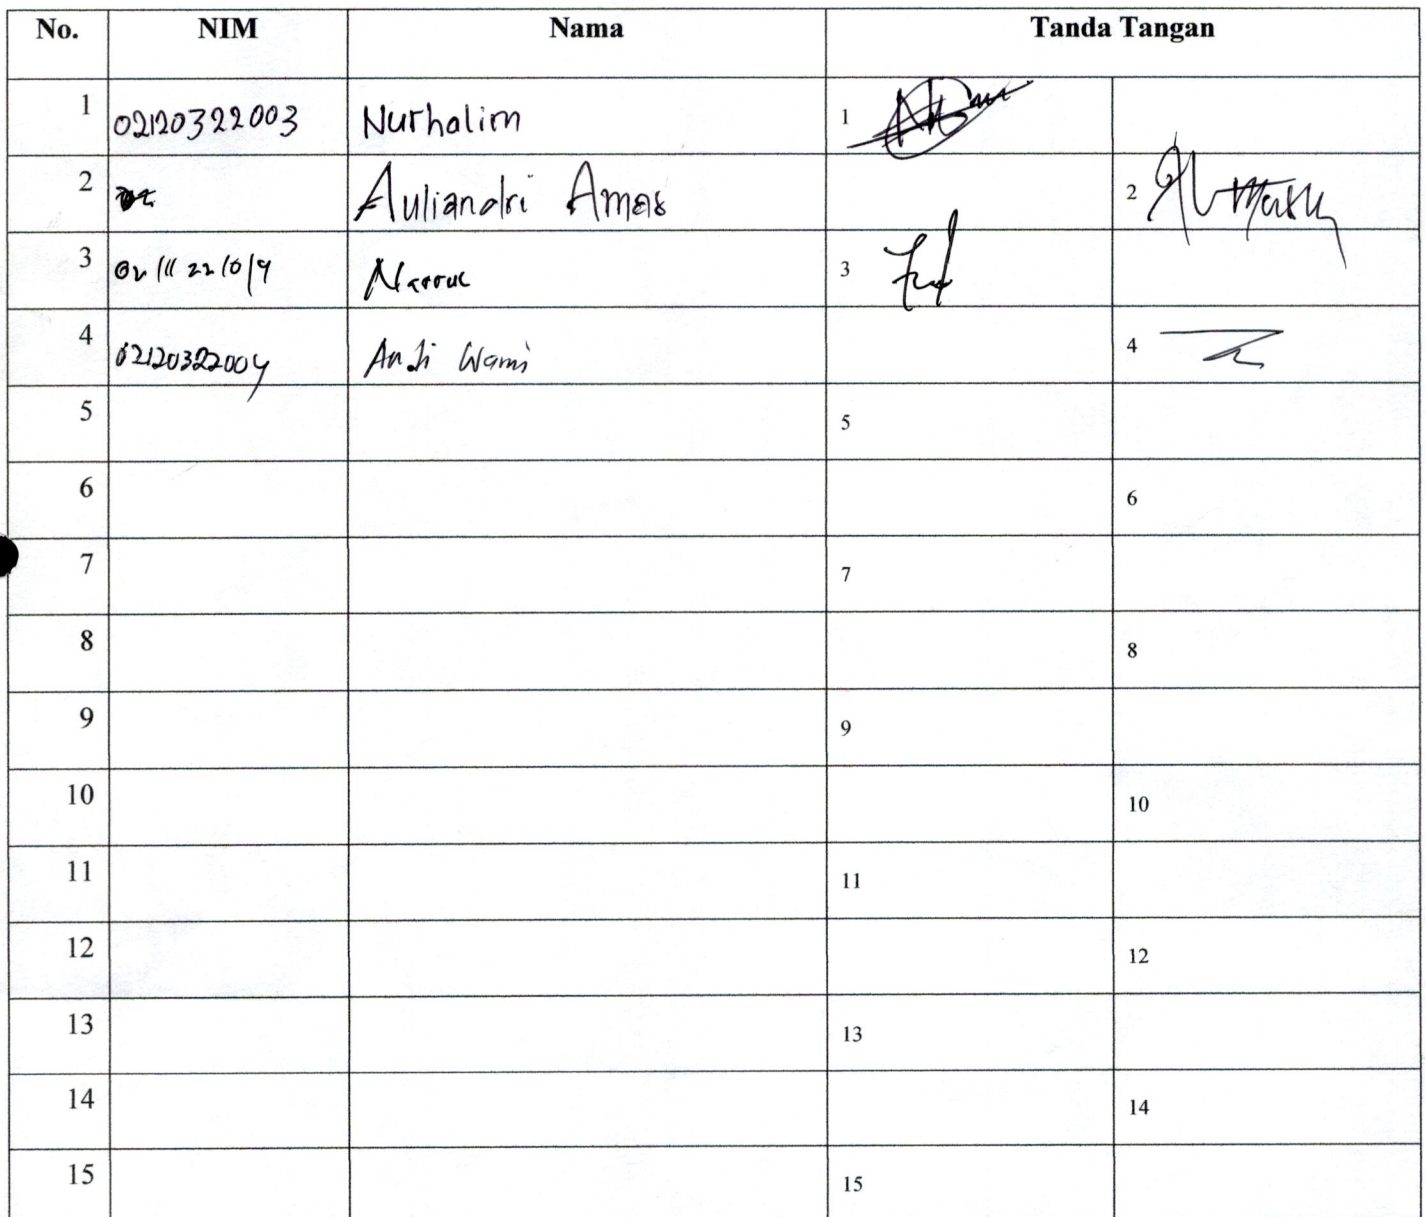 No. NIM Nama Tanda Tangan
1 02120322003 Nurhalim 1
2 Auliandri Amas 2
3 3
4 02120322004 Andi Wami 4
5 5
6 6
7 7
8 8
9 9
10 10
11 11
12 12
13 13
14 14
15 15